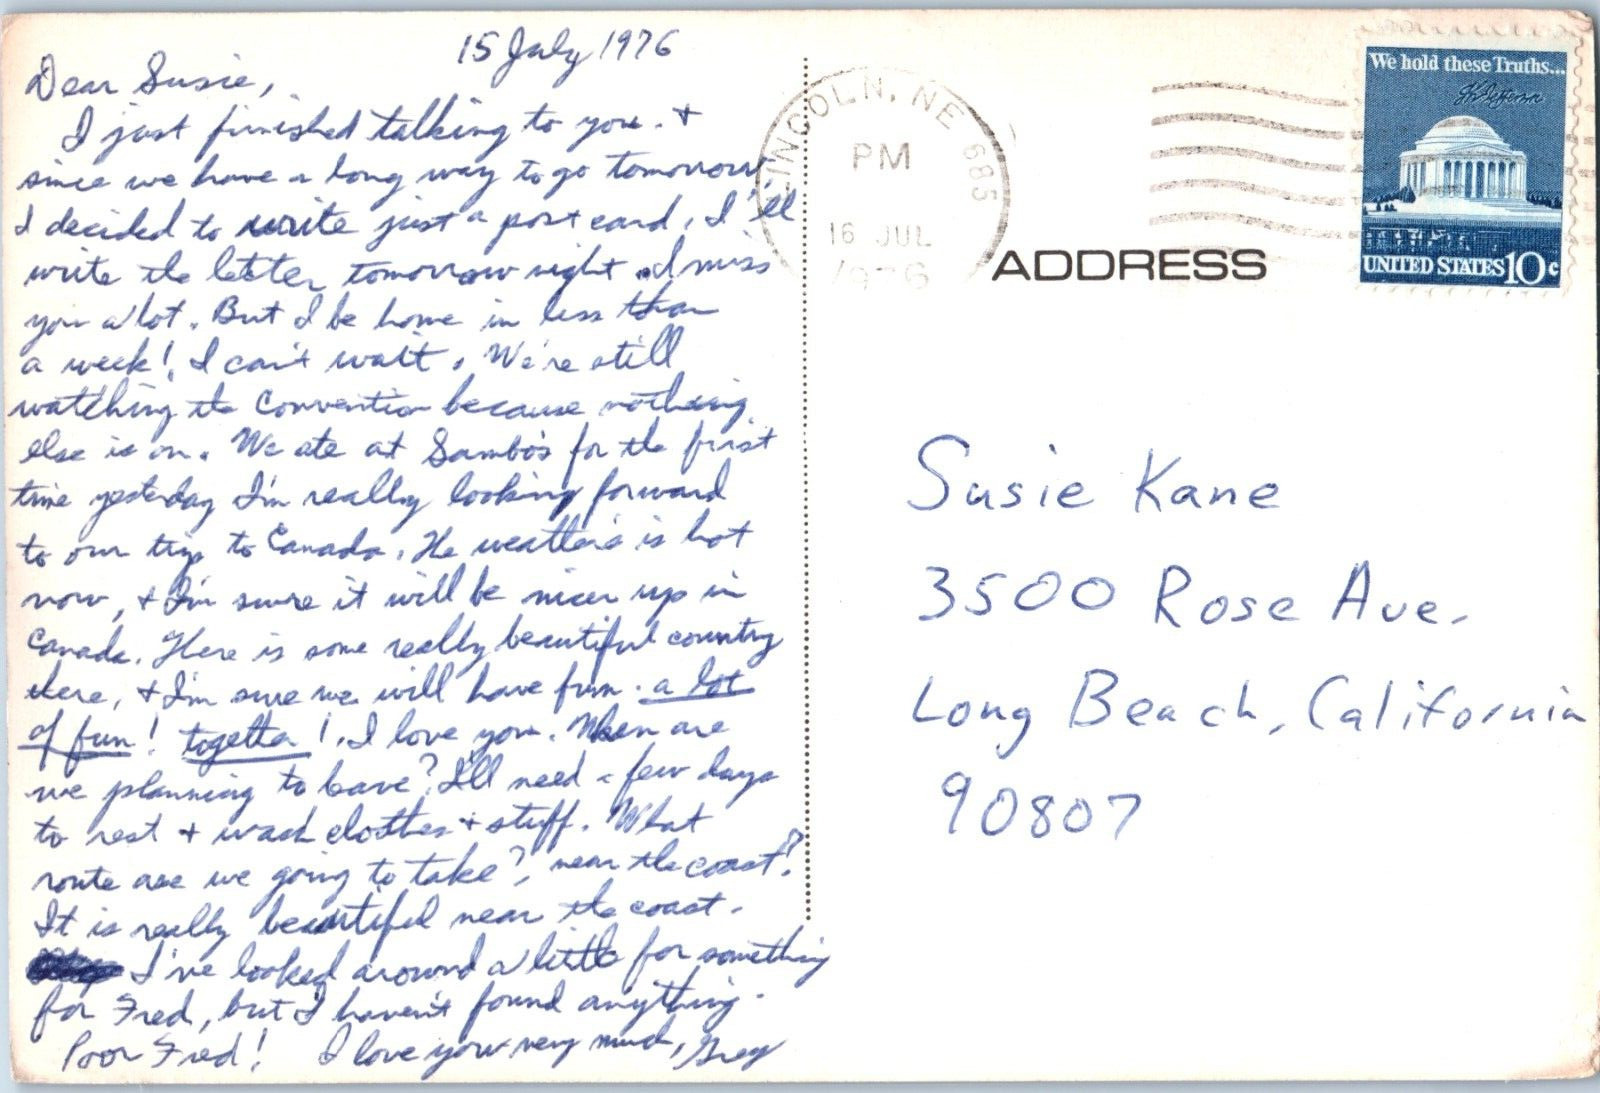 15 July 1976
Dear Susie,
I just finished talking to you. +
since we have a long way to go tomorrow,
I decided to write just a post card. I'll
write the letter tomorrow night. I miss
you a lot. But I be home in less than
a week! I can't wait. We're still
watching the Convention because nothing
else is on. We ate at Sambo's for the first
time yesterday I'm really looking forward
to our trip to Canada. The weather's is hot
now, + I'm sure it will be nicer up in
Canada. There is some really beautiful country
there, + I'm sure we will have fun. a lot
of fun! together! I love you. When are
we planning to leave? I'll need a few days
to rest + wash clothes + stuff. What
route are we going to take?, near the coast?
It is really beautiful near the coast.
I've looked around a little for something
for Fred, but I haven't found anything.
Poor Fred! I love you very much, Greg
LINCOLN, NE 685
PM
16 JUL
1976
We hold these Truths...
Th Jefferson
UNITED STATES 10c
ADDRESS
Susie Kane
3500 Rose Ave.
Long Beach, California
90807